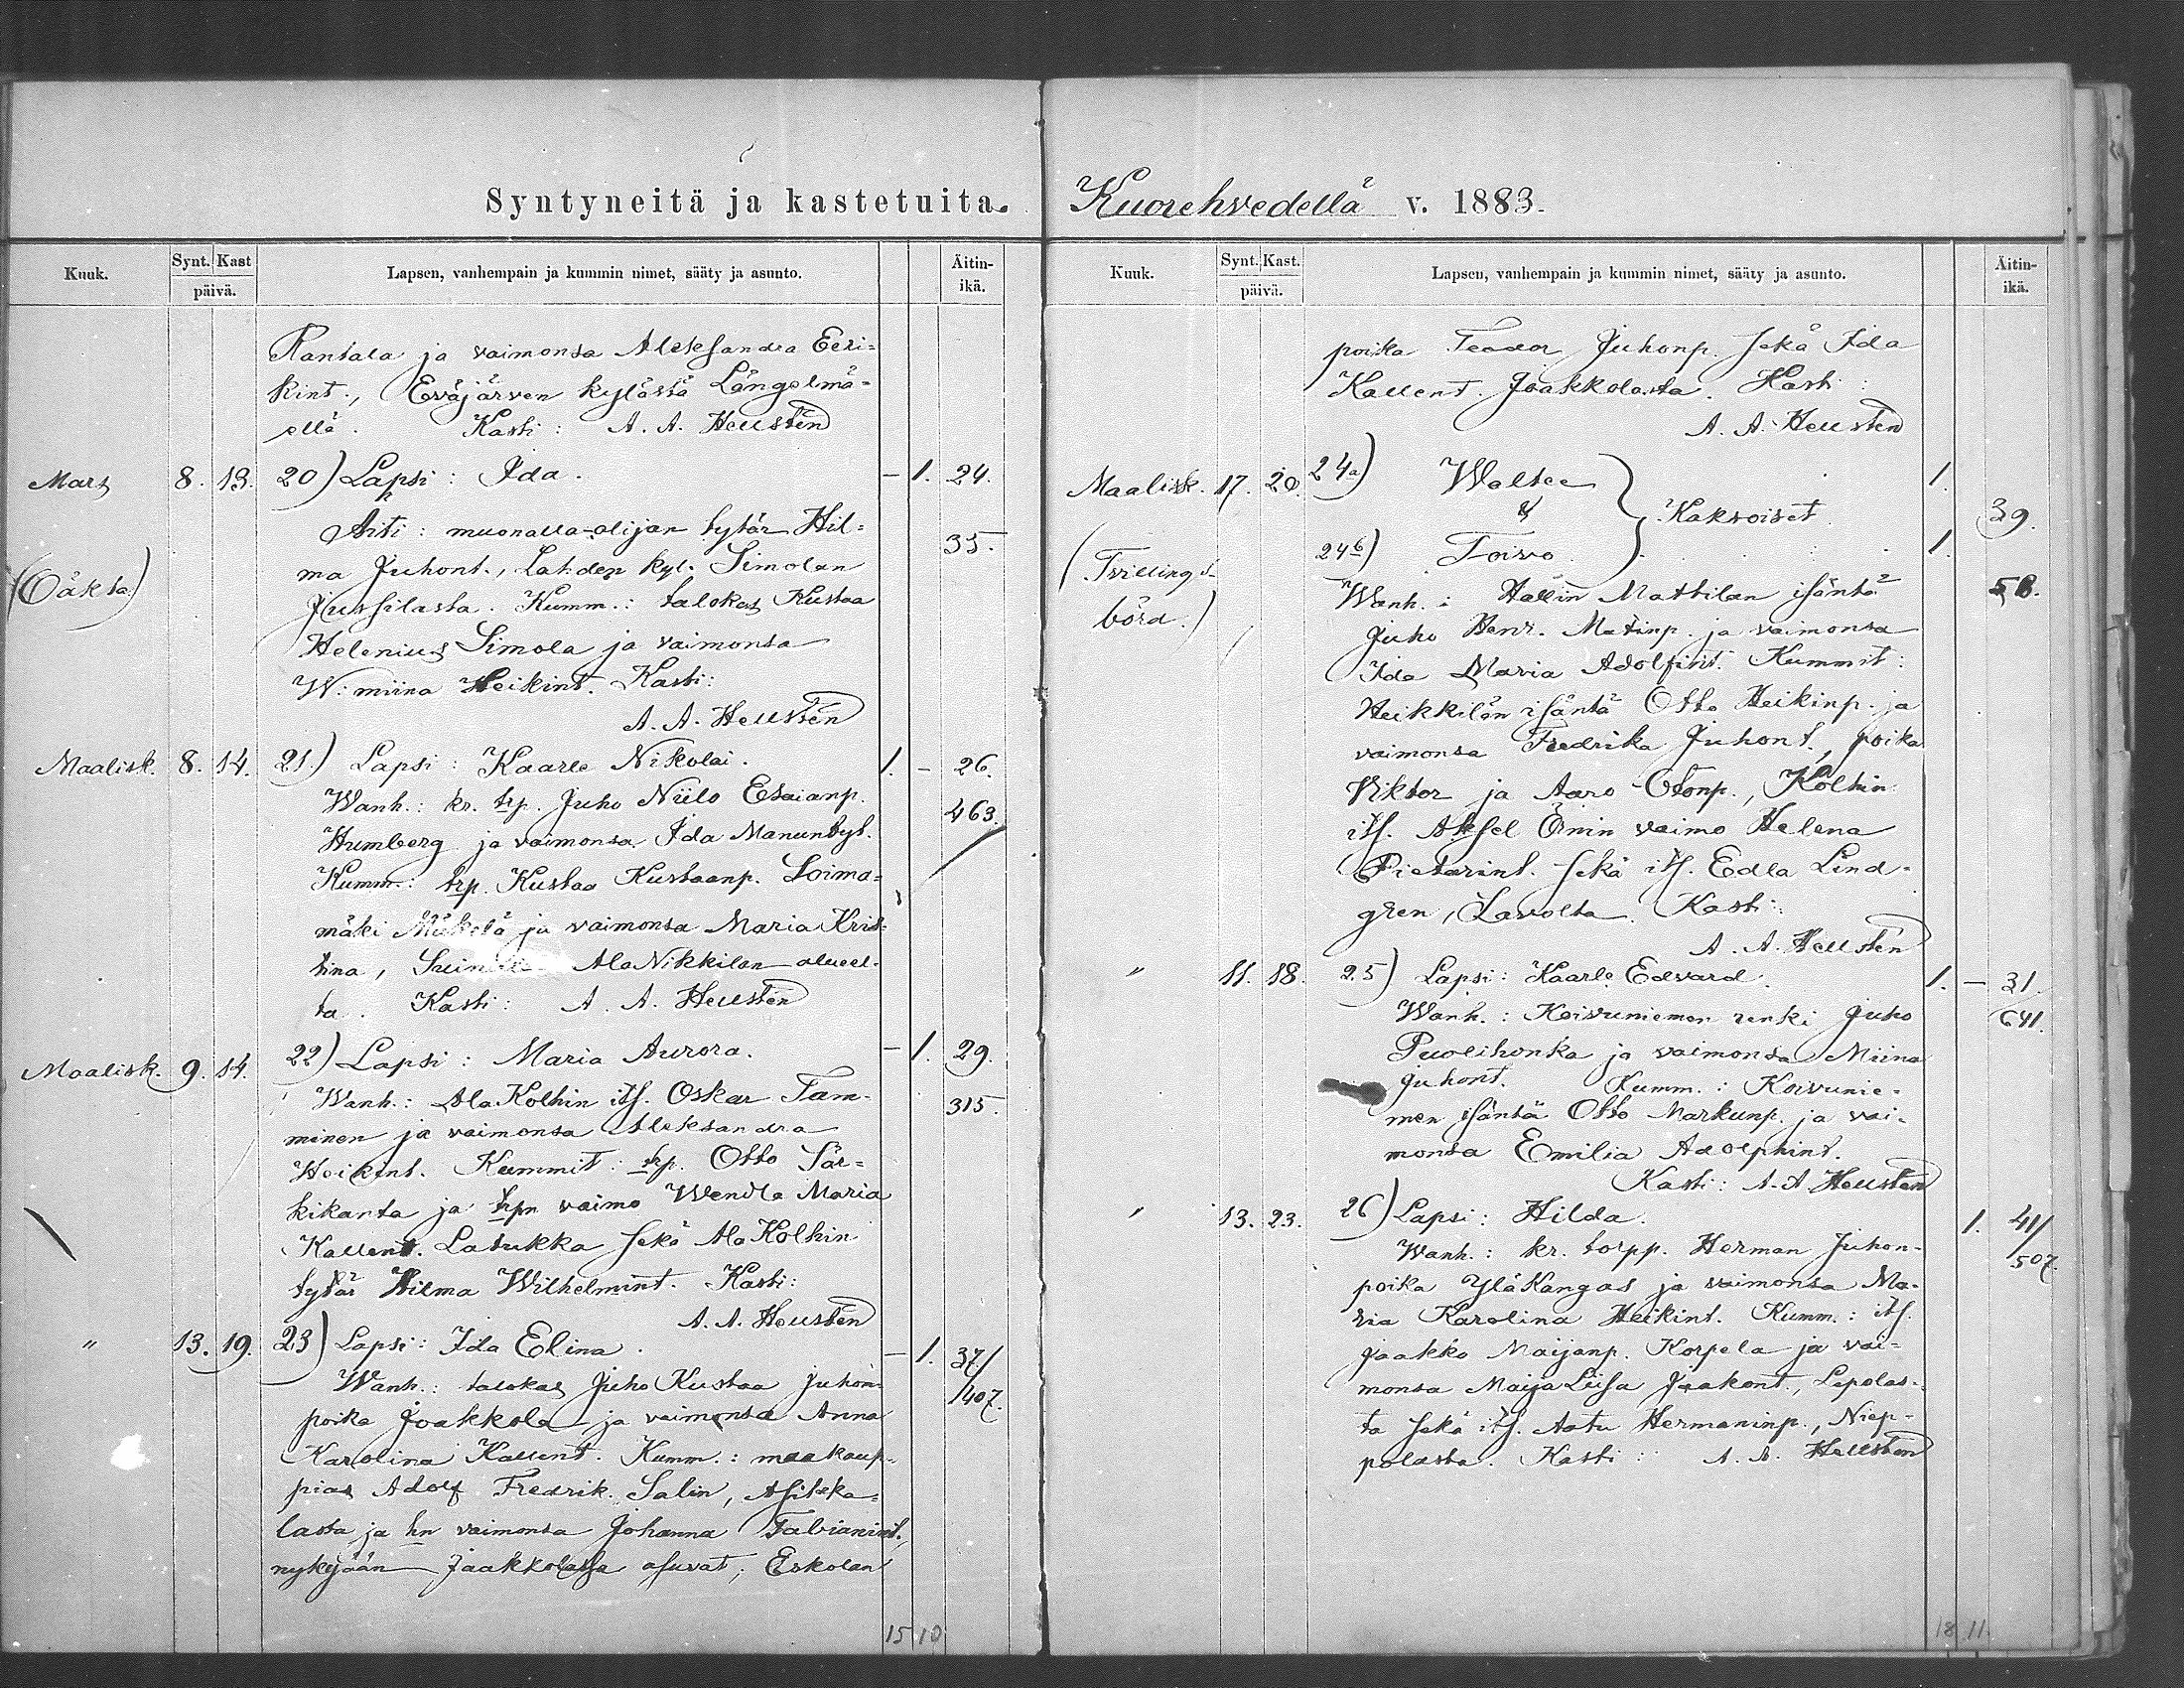 Syntyneitä ja kastetuita.
Kuuk. Synt. Kast päivä. Lapsen, vanhempain ja kummin nimet, sääty ja asunto. Äitin-ikä.
Rantala ja vaimonsa Aleksandra Eeri=
kint., Eväjärven kylässä Längelmä=
ellä. Kasti: A. A. Hellstén
Mars 8. 13. 20) Lapsi: Ida. — 1. 24.
Äiti: muonalla-olijan tytär Hil= 35.
(Oäkta) ma Juhont., Lahden kyl. Simolan
Jussilasta. Kumm.: talokas Kustaa
Helenius Simola ja vaimonsa
W:miina Heikint. Kasti:
A. A. Hellstén
Maalisk. 8. 14. 21.) Lapsi: Kaarle Nikolai. 1. – 26.
Wanh.: kr. trp. Juho Niilo Esaianp. 463.
Humberg ja vaimonsa Ida Manuntyt.
Kumm.: trp. Kustaa Kustaanp. Loima=
mäki Mäkelä ja vaimonsa Maria Kris-
tina, AlaNikkilan alueel-
ta. Kasti: A. A. Hellstén
Maalisk. 9. 14. 22) Lapsi: Maria Aurora. — 1. 29.
Wanh.: AlaKolhin its. Oskar Tam- 315.
minen ja vaimonsa Aleksandra
Heikint. Kummit: trp. Otto Sär=
kikanta ja trpn vaimo Wendla Maria
Kallent. Latukka sekä AlaKolhin
tytär Hilma Wilhelmint. Kasti:
A. A. Hellstén
" 13. 19. 23) Lapsi: Ida Elina. — 1. 37/
Wanh.: talokas Juho Kustaa Juhon- /407.
poika Jaakkola ja vaimonsa Anna
Karolina Kallent. Kumm.: maakaup-
pias Adolf Fredrik Salin, Asikka=
lasta ja hn vaimonsa Johanna Fabianint.,
nykyään Jaakkolassa asuvat; Eskolan
15 10
Kuorehvedellä v. 1883.
Kuuk. Synt. Kast. päivä. Lapsen, vanhempain ja kummin nimet, sääty ja asunto. Äitin-ikä.
poika Teodor Juhonp. sekä Ida
Kallent. Jaakkolasta. Kasti:
A. A. Hellstén
Maalisk. 17. 20. 24a) Walter 1.
& } Kaksoiset. 39.
(Tvillings- 24b) Toivo 1.
börd.) Wanh.: Hallin Mattilan isäntä 58.
Juho Henr. Matinp. ja vaimonsa
Ida Maria Adolfint. Kummit:
Heikkilän isäntä Otto Heikinp. ja
vaimonsa Fredrika Juhont., poika
Viktor ja Aaro Otonp., Kolhin
its. Aksel Örnin vaimo Helena
Pietarint. sekä its. Edla Lind-
gren, Kasti:
A. A. Hellstén
" 11. 18. 25) Lapsi: Kaarle Edvard. 1. — 31.
Wanh.: Koivuniemen renki Juho 641.
Puolihonka ja vaimonsa Miina
Juhont. Kumm.: Koivunie-
men isäntä Otto Markunp. ja vai-
monsa Emilia Adolphint.
Kasti: A. A. Hellstén
" 13. 23. 26) Lapsi: Hilda. 1. 41/
Wanh.: kr. torpp. Herman Juhon- 507.
poika YläKangas ja vaimonsa Ma-
ria Karolina Heikint. Kumm.: its.
Jaakko Maijanp. Korpela ja vai-
monsa MaijaLiisa Jaakont., Lepolas-
ta sekä its. Aatu Hermaninp., Niep-
polasta. Kasti: A. A. Hellstén
18 11.